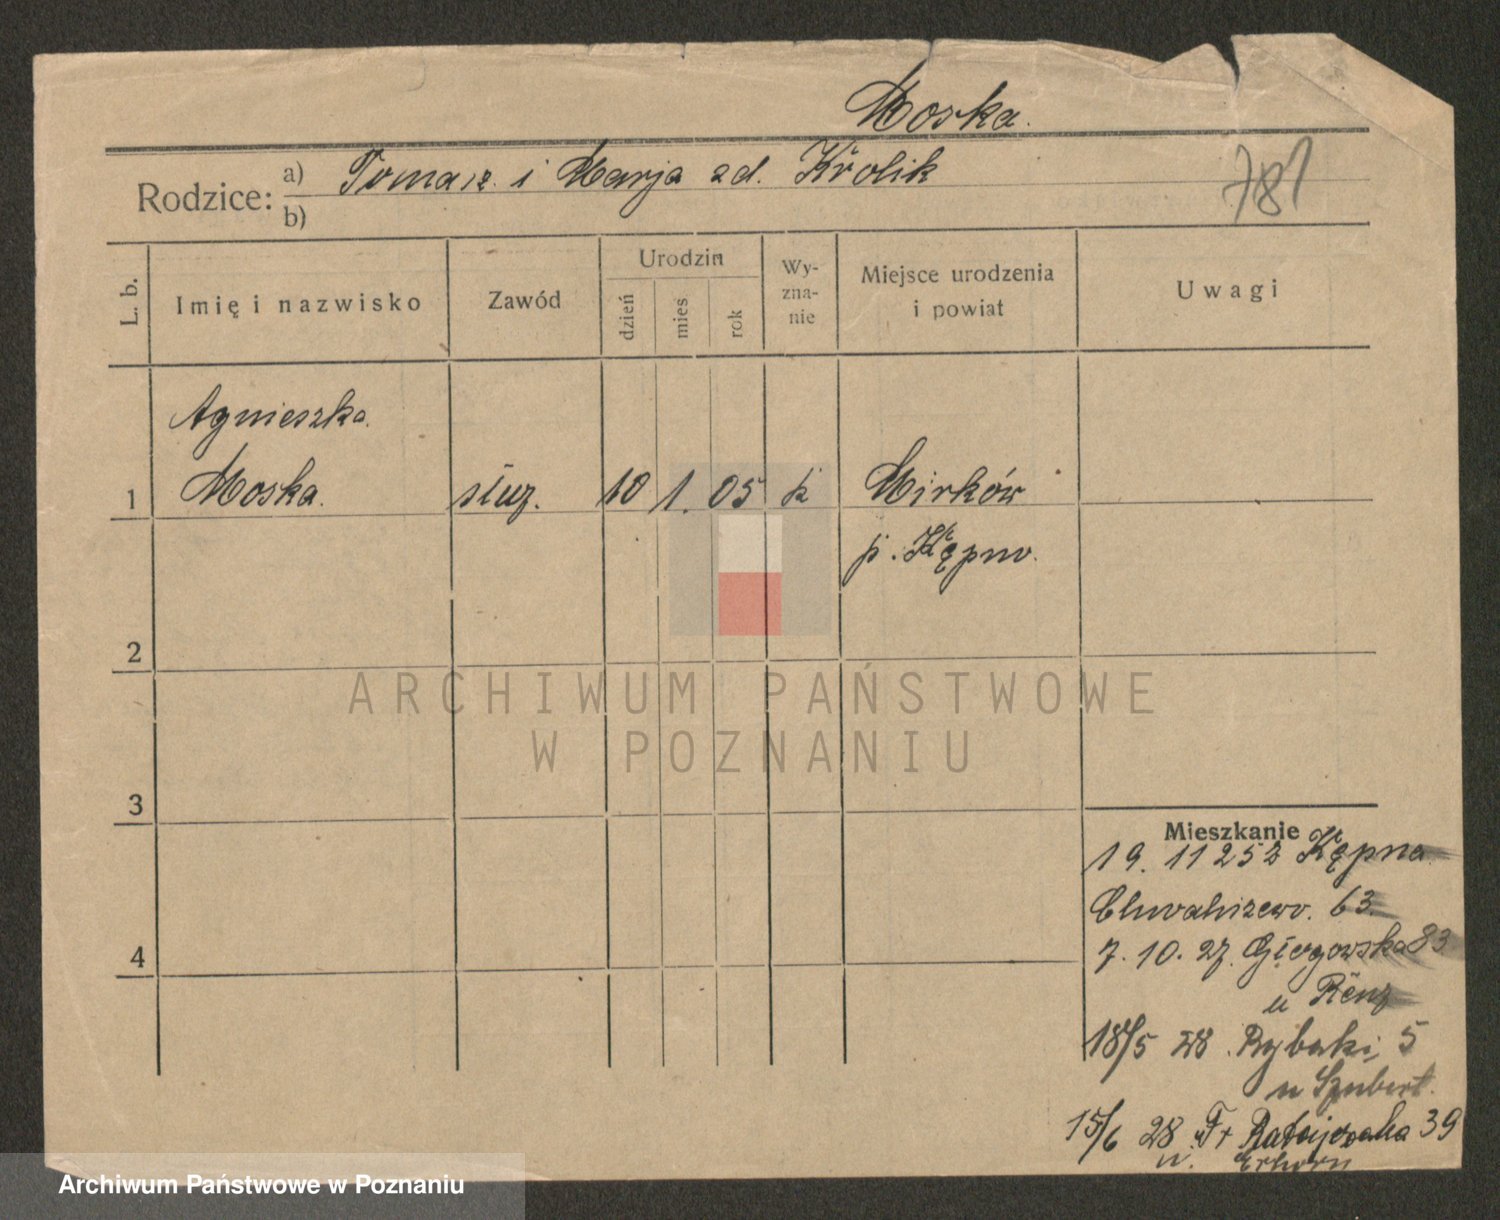 Moska.
Rodzice: a) Tomasz. i Marja zd. Królik
b)
781
L. b.
Imię i nazwisko
Zawód
Urodzin
dzień
mies.
rok
Wy-
zna-
nie
Miejsce urodzenia
i powiat
Uwagi
Agnieszka.
1 Moska. służ. 10 1. 05 k Mirków
p. Kępno.
2
3
4
ARCHIWUM PAŃSTWOWE
W POZNANIU
Mieszkanie
19. 11 25 z Kępna.
Chwaliszewo. 63.
7. 10. 27. Głogowska 83
u Renz
18/5 28. Rybaki 5
u Szubert.
15/6 28. Fr Ratajczaka 39
u.
Archiwum Państwowe w Poznaniu